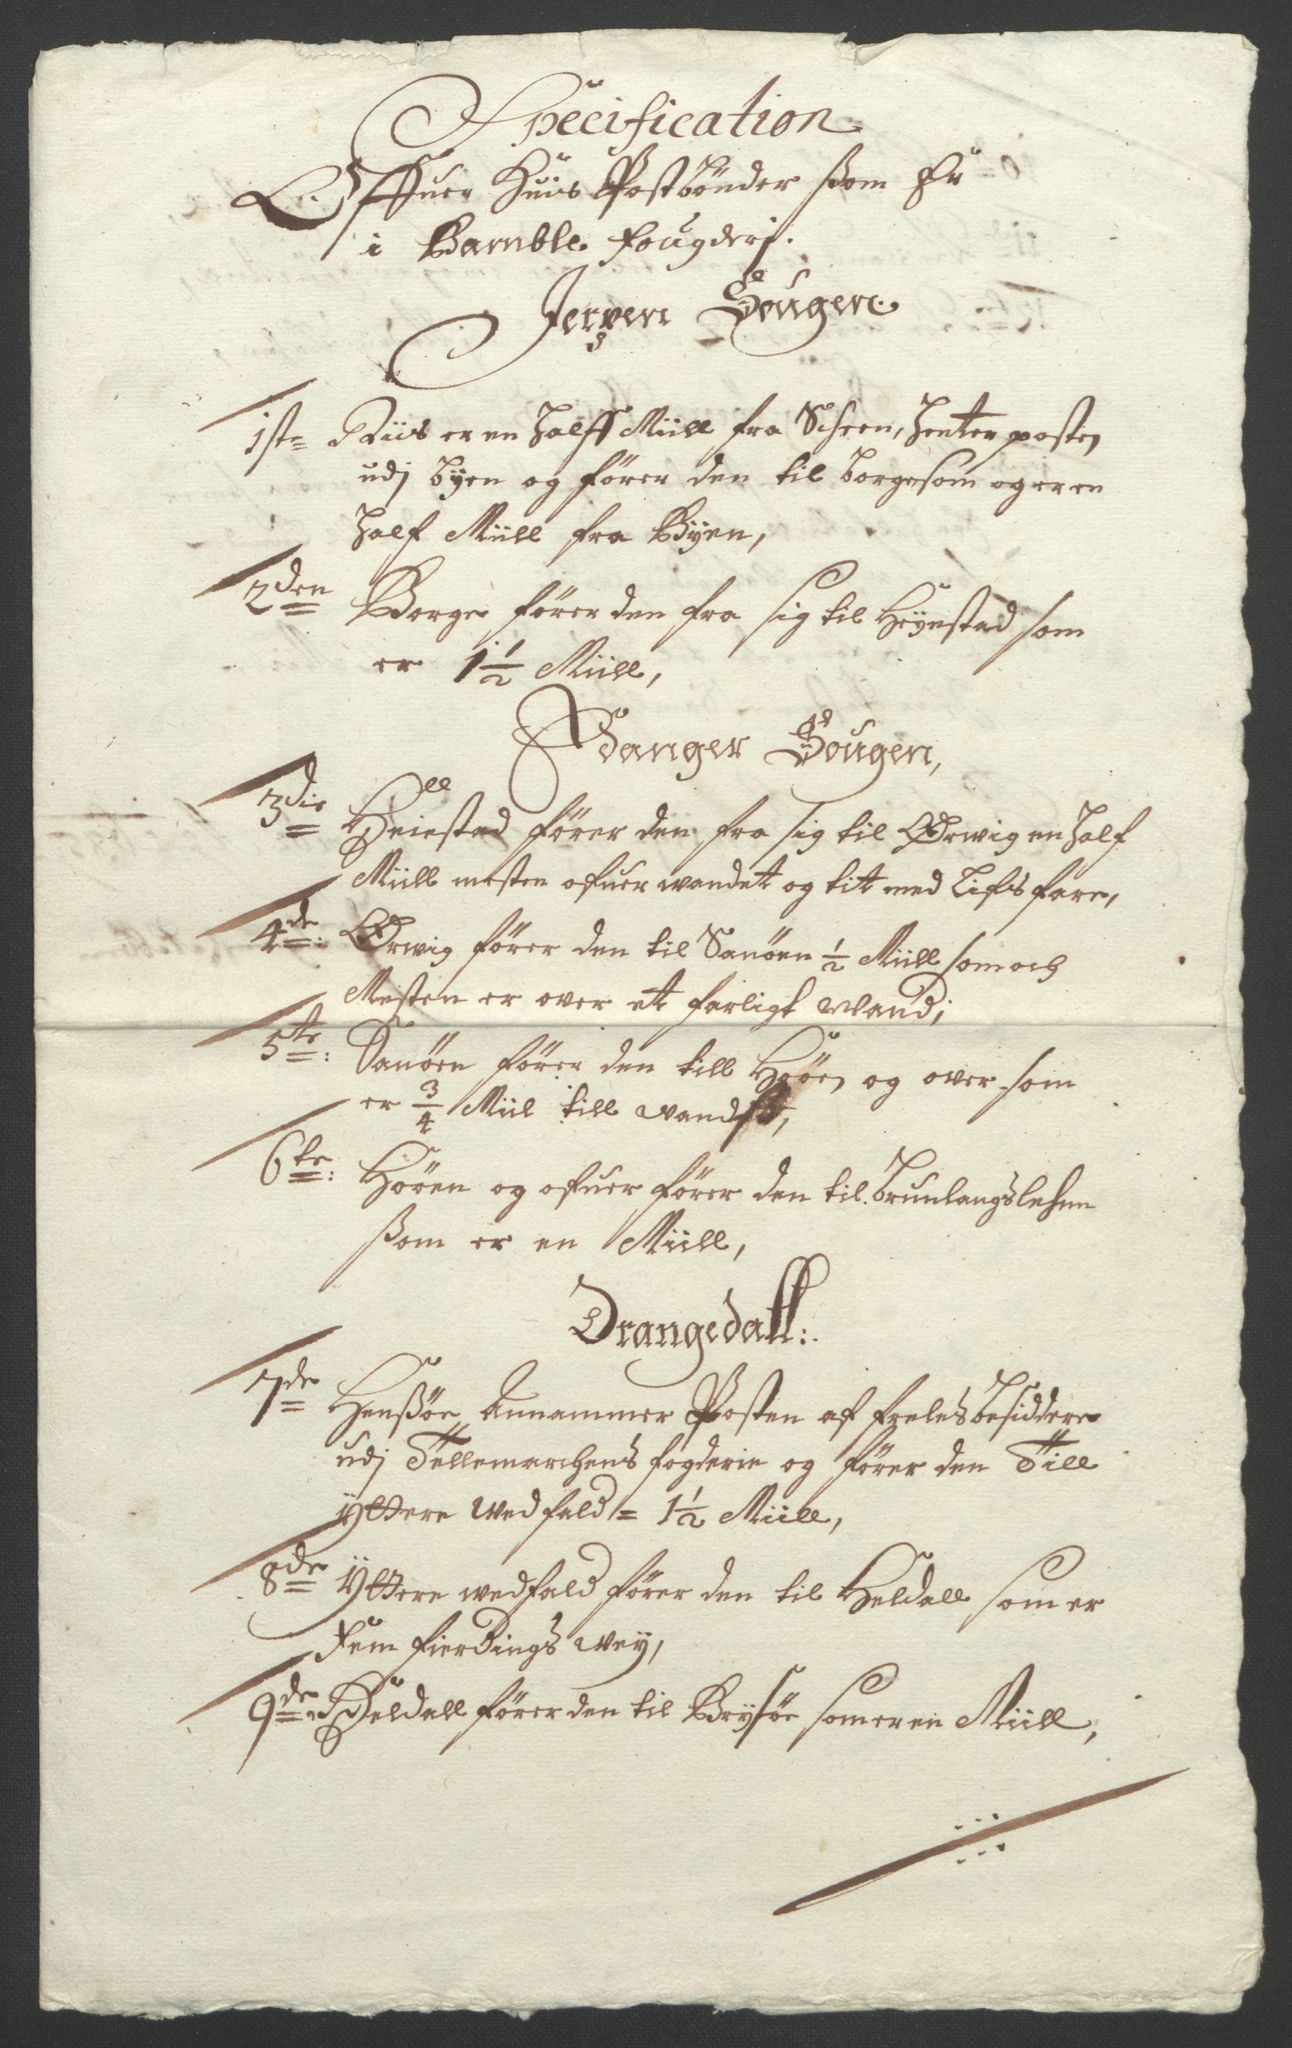 Specification
Offuer Huis Postbønder ßom Er
i Bamble fougderj.
Jerpen Sougen
1ste Riis er en Halff Miill fra Scheen, Henter posten
udj Byen og fører den til Borge som og er en
Half Miill fra Byen,
2den Borge fører den fra sig til Heyestad som
er 1½ Miill,
Edanger Sougen,
3die Heiestad fører den fra sig til Ørwig en Half
Miill mesten ofuer wandet og tit med Lifs fare,
4de: Ørwig fører den til Sanøen ½ Miill som och
Mesten er over et farligt wand;
5te: Sanøen fører den till Høøen og over som
er ¾ Miil till wandß,
6te: Høøen og ofuer fører den til Brunlangslehn
ßom er en Miill,
Drangedall:
7de Henßøe Annammer Posten af freles besiddere
udj Tellemarchens fogderie og fører den Till
Yttere wedfald = 1½ Miill,
8de Yttere wedfald fører den til Heldall som er
fem fierdings wey,
9de Heldall fører den til Brysøe som er en Miill,